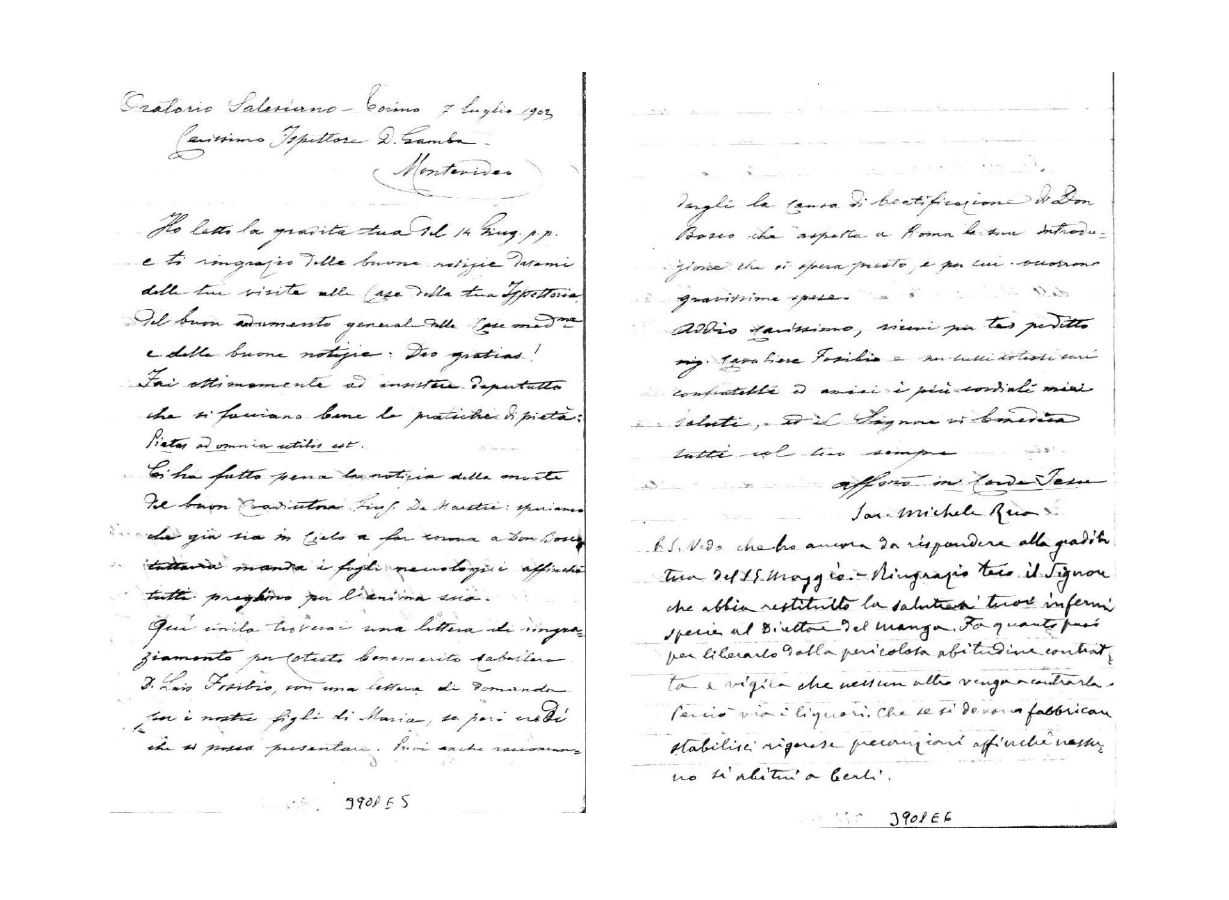 Oratorio Salesiano - Torino 7 Luglio 1902
Carissimo Ispettore D. Gamba
Montevideo
Ho letto la gradita tua del 14 Giug. p.p.
e ti ringrazio delle buone notizie datemi
delle tue visite alle Case della tua Ispettoria
del buon andamento general delle Case med.me
e delle buone notizie: Deo gratias!
Fai ottimamente ad insistere dapertutto
che si facciano bene le pratiche di pietà:
Pietas ad omnia utilis est.
Ci ha fatto pena la notizia della morte
del buon Coadiutore Gius. De Maestri: speriamo
che già sia in Cielo a far corona a Don Bosco
tuttavia manda i fogli necrologici affinchè
tutti preghino per l'anima sua.
Qui unita troverai una lettera di ringra-
ziamento per cotesto benemerito
D. Luis Fosibio, con una lettera di domanda
per i nostri figli di Maria, se però credi
che si possa presentare. Puoi anche raccoman-
3908 E 5
dargli la causa di beatificazione di Don
Bosco che aspetta a Roma la sua introdu-
zione che si spera presto, e per cui occorrono
gravissime spese.
Addio carissimo, ricevi per te predetto
sig. Cavaliere Fosibio e per tutti cotesti cari
confratelli ed amici i più cordiali miei
saluti, ed il Signore vi benedica
tutti col tuo sempre
aff.mo in Corde Jesu
Sac. Michele Rua
P.S. Vedo che ho ancora da rispondere alla gradita
tua del 15 Maggio. - Ringrazio teco il Signore
che abbia restituito la salute a' tuoi infermi
specie al Direttore del manga. Fa quanto puoi
per liberarlo dalla pericolosa abitudine contrat-
ta e vigila che nessun altro venga a contrarla.
Perciò via i liquori. Che se si devono fabbricare
stabilisci rigorose precauzioni affinchè nessu-
no si abitui a berli.
3908 E 6